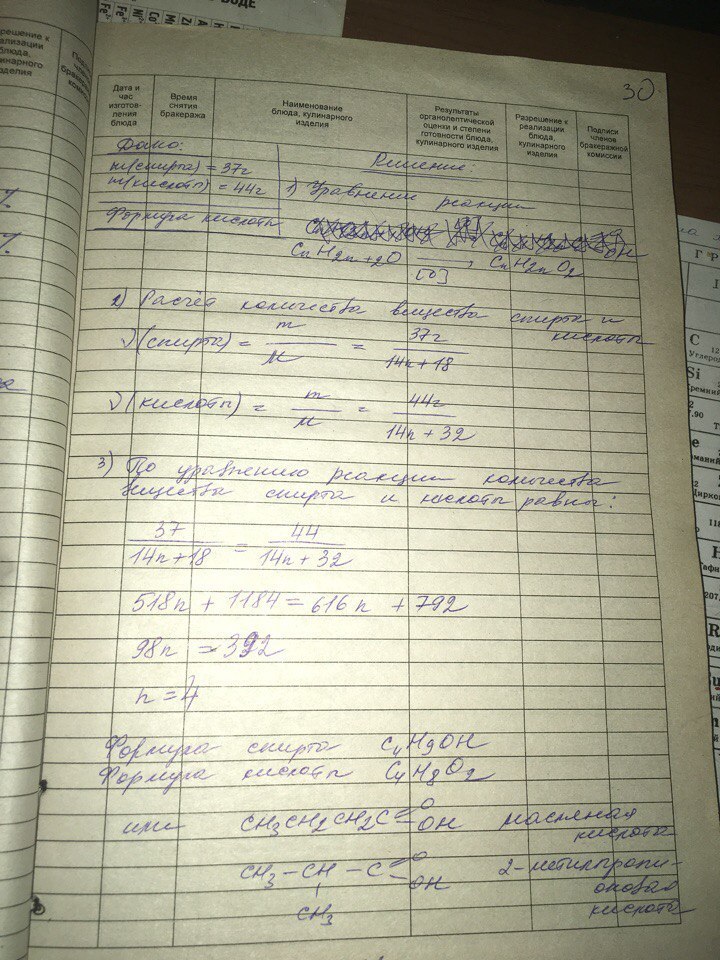 ВОДЕ
30
решение к
еализации
блюда,
линарного
изделия
Подписи
членов
бракеражн
комиссии
Дата и
час
изготов-
ления
блюда
Время
снятия
бракеража
Наименование
блюда, кулинарного
изделия
Результаты
органолептической
оценки и степени
готовности блюда,
кулинарного изделия
Разрешение к
реализации
блюда,
кулинарного
изделия
Подписи
членов
бракеражной
комиссии
Дано:
m(спирта) = 37г
m(кислоты) = 44г
Формула кислоты
Решение:
1) Уравнение реакции
CnH2n+2O [O] , CnH2nO2
2) Расчёт количества вещества спирта и
кислоты
ν(спирта) = m/M = 37г/14n+18
ν(кислоты) = m/M = 44г/14n+32
3) По уравнению реакции количества
вещества спирта и кислоты равны:
37/14n+18 = 44/14n+32
518n + 1184 = 616n + 792
98n = 392
n = 4
Формула спирта C4H9OH
Формула кислоты C4H8O2
или CH3CH2CH2C=O OH масляная
кислота
CH3–CH–C=O OH 2-метилпропи-
CH3 оновая
кислота
ГР
C 12
Углерод
Si
Кремний